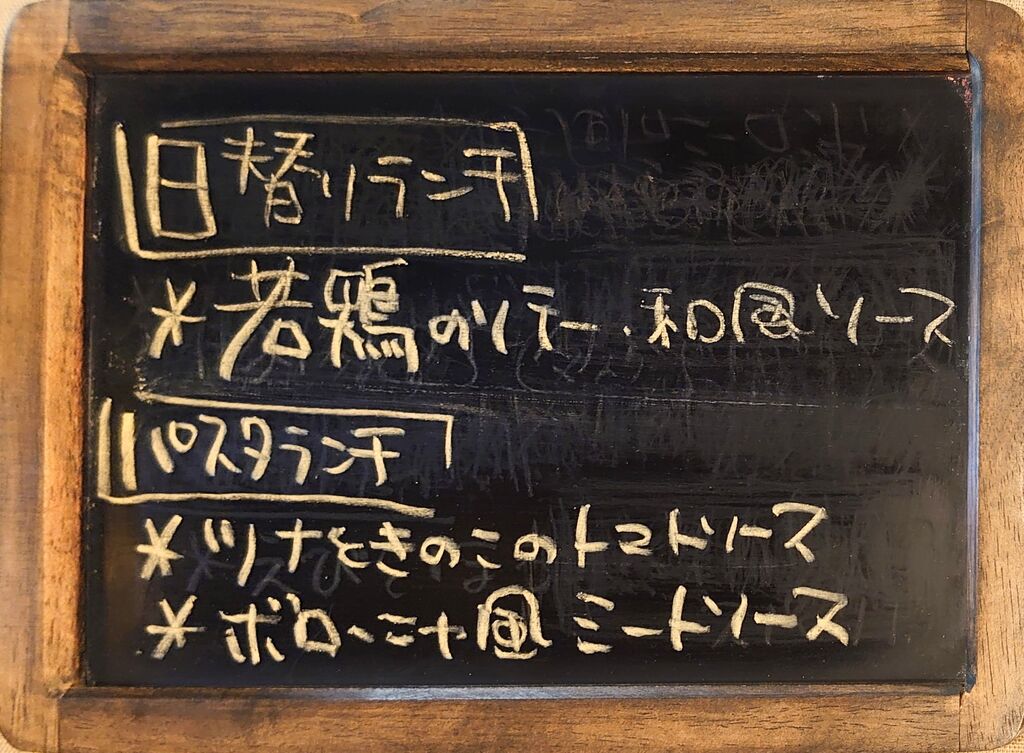 日替りランチ
*若鶏のソテー・和風ソース
パスタランチ
*ツナときのこのトマトソース
*ボローニャ風ミートソース